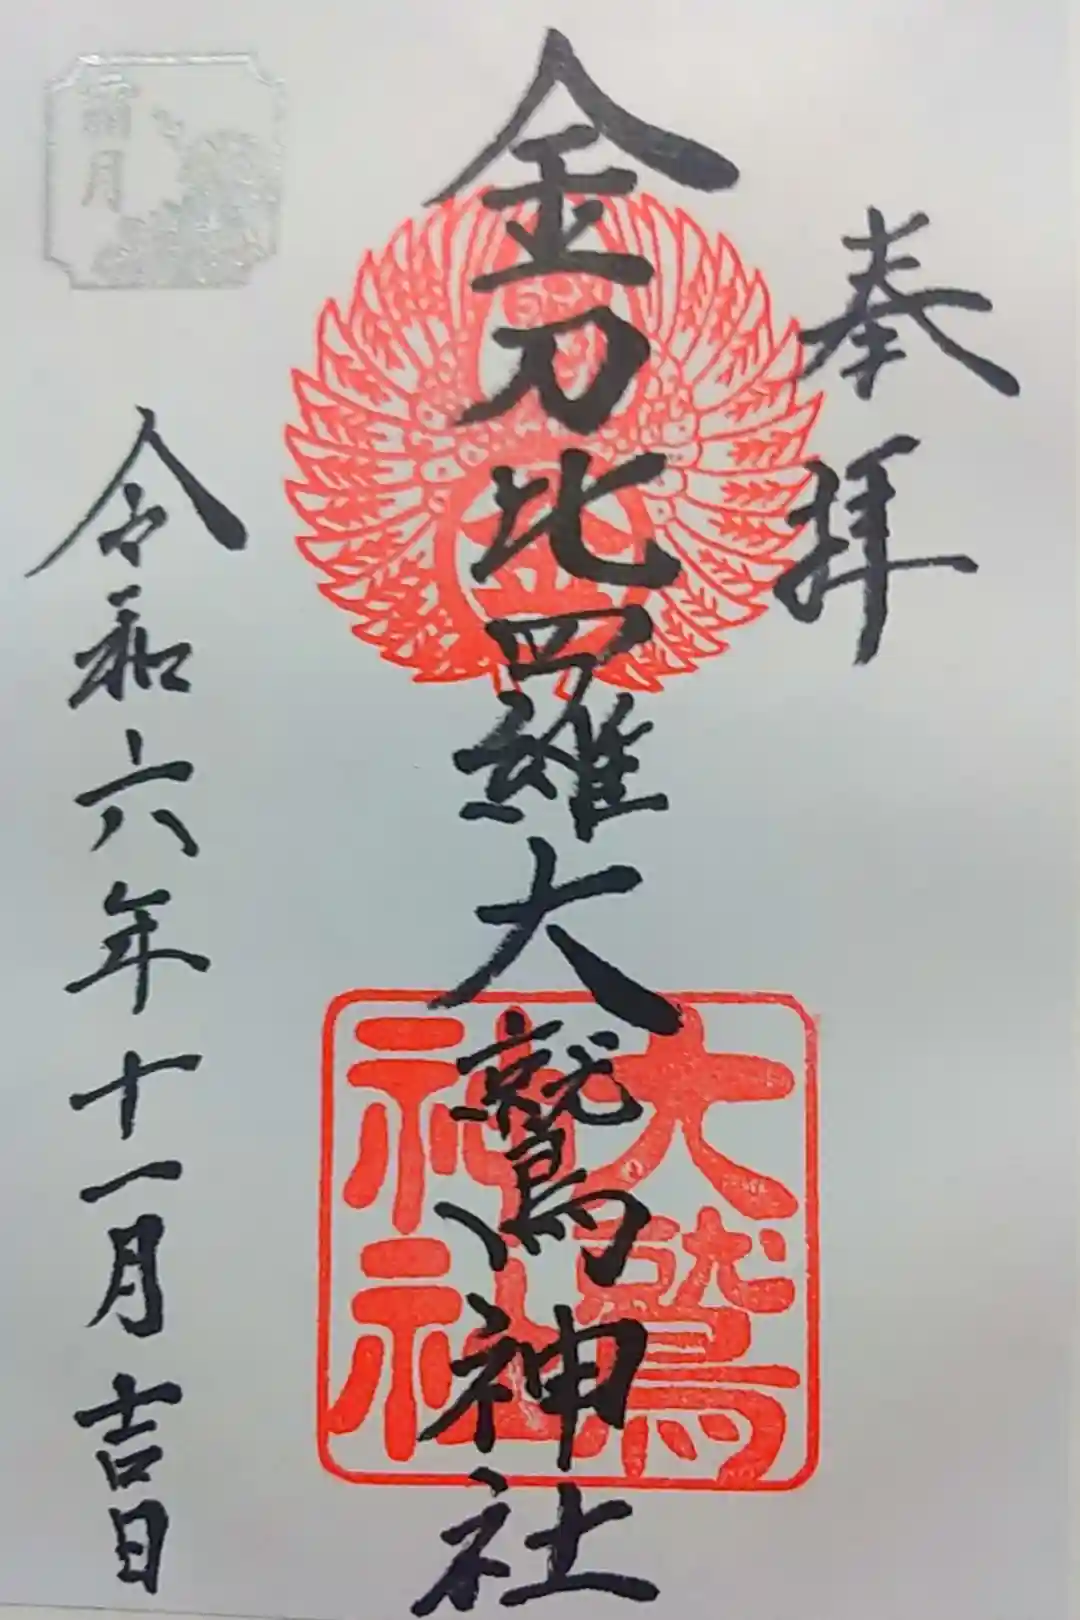 奉拝
金刀比羅大鷲神社
金
大鷲
神社
令和六年十一月吉日
霜月